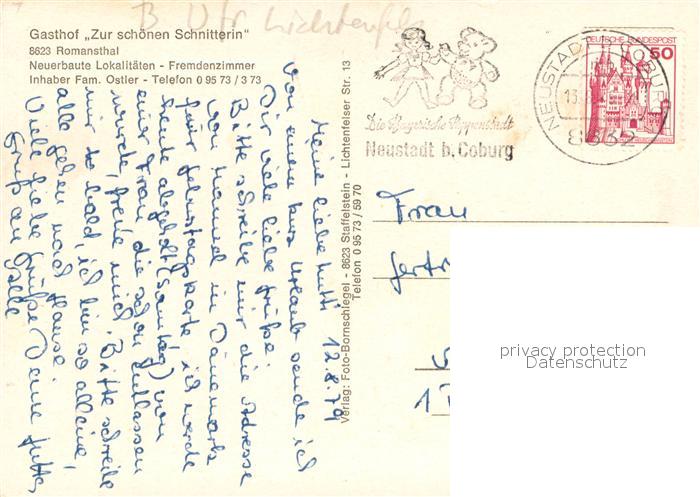 B Utr Lichtenfels
Gasthof „Zur schönen Schnitterin"
8623 Romansthal
Neuerbaute Lokalitäten - Fremdenzimmer
Inhaber Fam. Ostler - Telefon 0 95 73 / 3 73
Meine liebe Mutti 12.8.79
Von einem kurz Urlaub sende ich
Dir viele liebe Grüße.
Bitte schreibe mir die Adresse
von in Dänemark
für Geburtstagskarte, ich werde
heute abgeholt (Samstag) von
einer Frau die schon entlassen
wurde, freue mich. Bitte schreibe
mir so bald, ich bin so alleine,
alle gehen nach Hause.
Viele liebe Grüße Deine
Gruß an
Verlag: Foto-Bornschlegel - 8623 Staffelstein - Lichtenfelser Str. 13
Telefon 0 95 73 / 59 70
Die Bayerische Puppenstadt
Neustadt b. Coburg
NEUSTADT B COBURG
8632
DEUTSCHE BUNDESPOST
50
Frau
privacy protection
Datenschutz